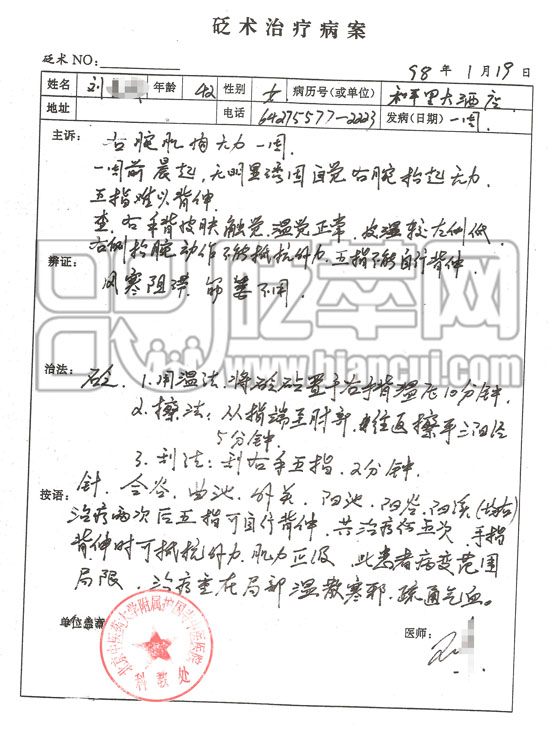 砭术治疗病案
砭术NO:
98年1月19日
姓名 刘 年龄 42 性别 女 病历号(或单位) 和平里大酒店
地址 电话 64275577-2223 发病(日期) 一周
主诉: 右腕肌肉无力一周
一周前晨起,无明显诱因自觉右腕抬起无力,
五指难以背伸
查 右手背皮肤触觉、温觉正常,皮温较左侧低
右侧抬腕动作不能抵抗外力,五指不能自行背伸
辨证: 风寒阻滞,筋萎不用
治法: 砭,1.用温法:将砭砧置于右手背温灸10分钟.
2.擦法:从指端至肘部,往返擦手三阳经
5分钟.
3.刮法:刮右手五指,2分钟.
针,合谷 曲池 外关 阳池 阳谷 阳溪(均右)
按语: 治疗两次后五指可自行背伸,共治疗五次,手指
背伸时可抵抗外力,肌力正级,此患者病变范围
局限,治疗重在局部温散寒邪,疏通气血。
单位盖章
医师:
北京中医药大学附属护国寺中医医院
科教处
砭萃网
www.biancui.com